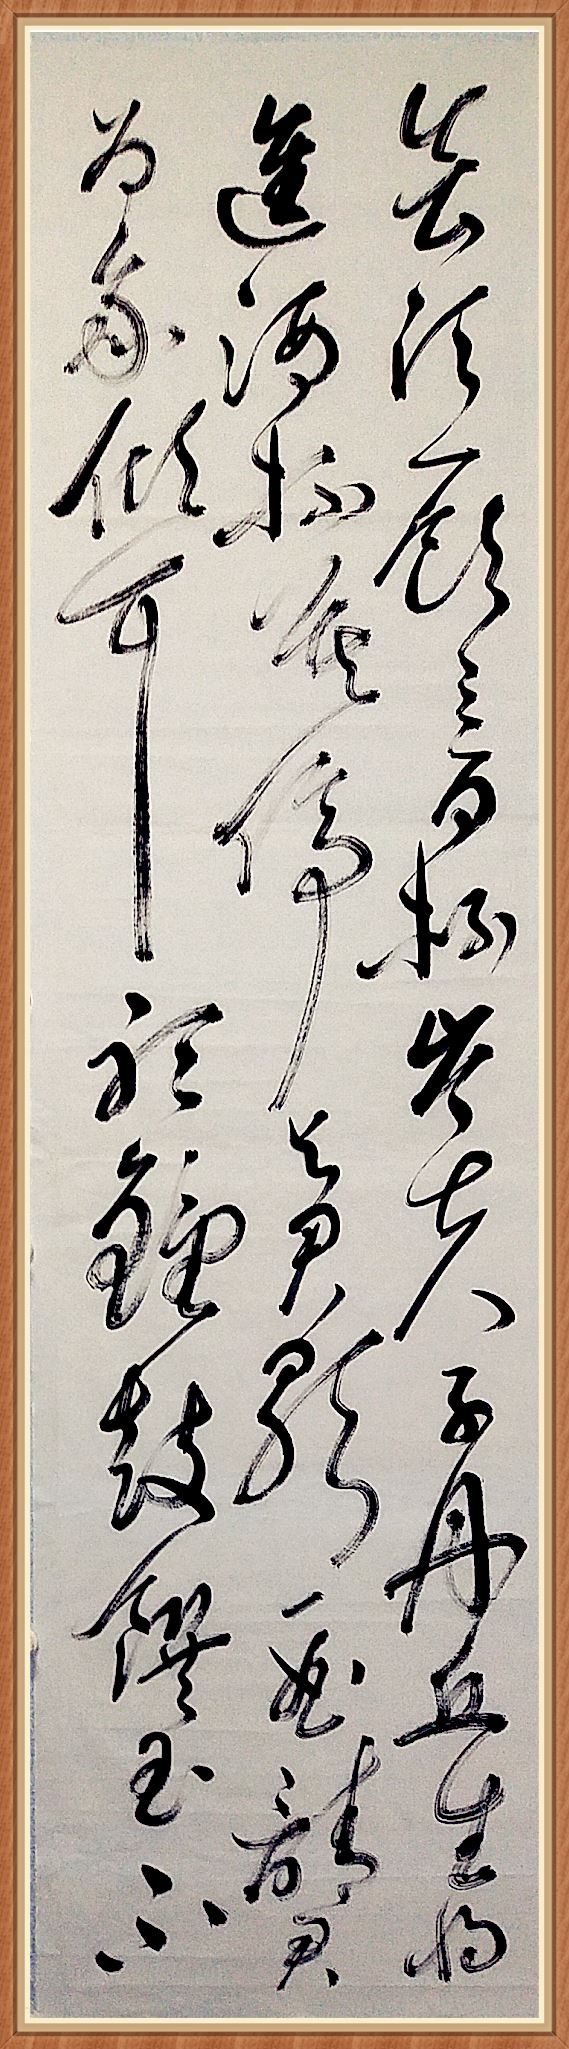 會須一飲三百杯岑夫子丹丘生將
進酒杯莫停與君歌一曲請君
為我傾耳聽鐘鼓饌玉不